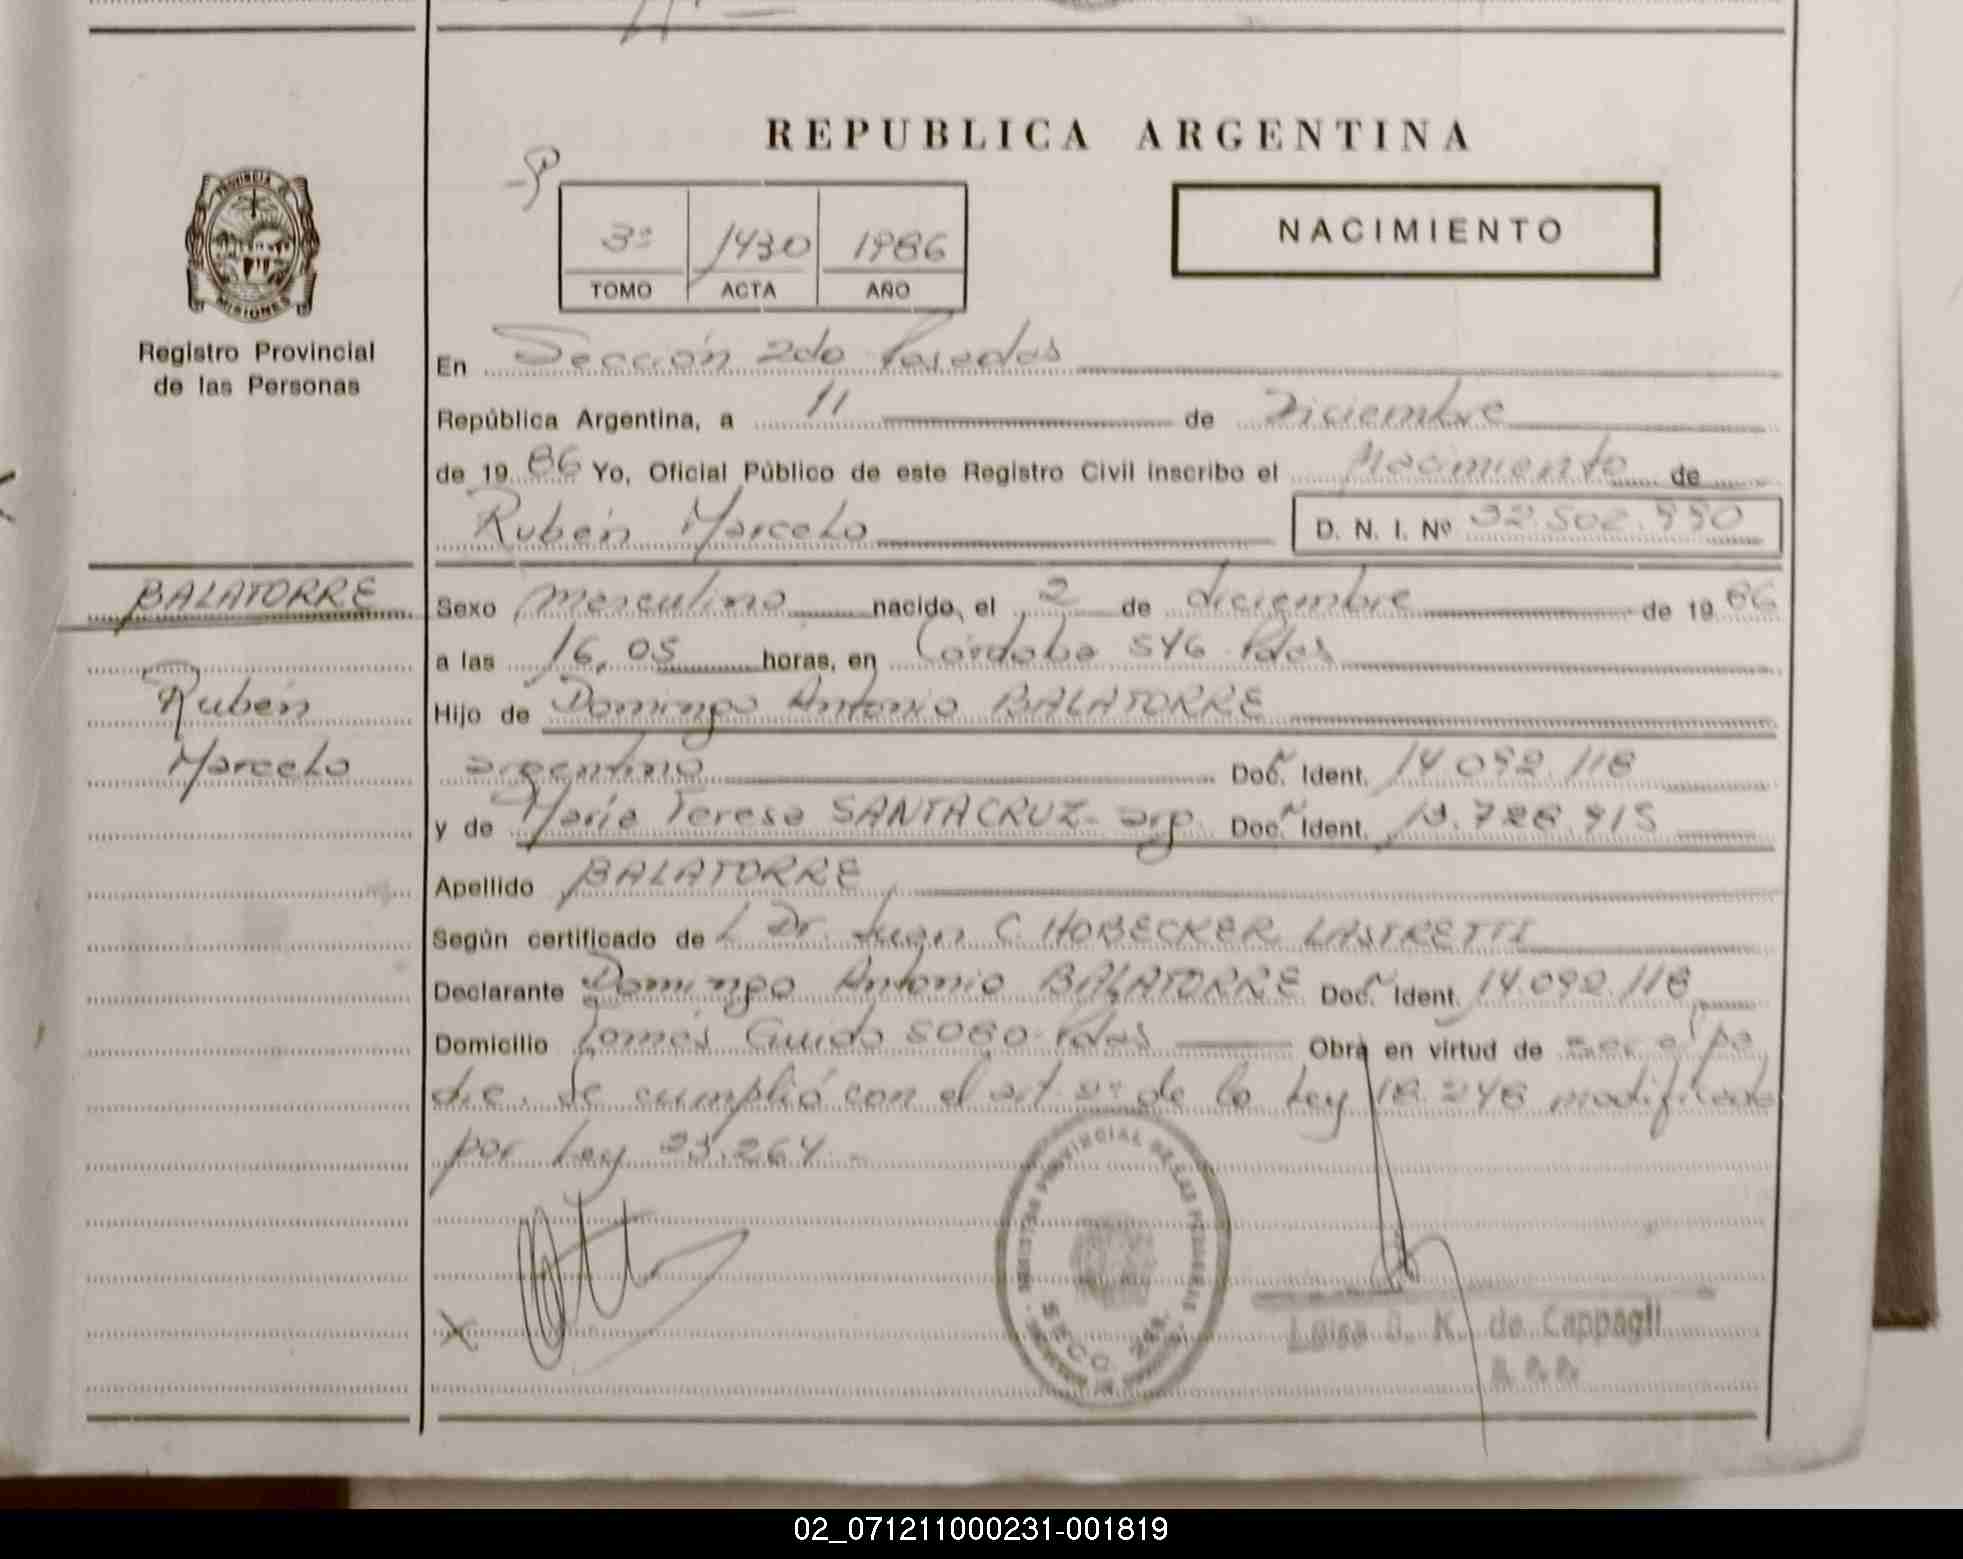 REPUBLICA ARGENTINA
3º 1430 1986
TOMO ACTA AÑO
NACIMIENTO
PROVINCIA DE
MISIONES
Registro Provincial
de las Personas
En Sección 2do Posadas
República Argentina, a 11 de Diciembre
de 1986 Yo, Oficial Público de este Registro Civil inscribo el Nacimiento de
Rubén Marcelo D. N. I. Nº 32.502.990
BALATORRE
Rubén
Marcelo
Sexo masculino nacido, el 2 de diciembre de 1986
a las 16,05 horas, en Córdoba 546 Pdas
Hijo de Domingo Antonio BALATORRE
argentino Doc. Ident. 14.092.118
y de María Teresa SANTACRUZ - arg. Doc. Ident. 13.728.915
Apellido BALATORRE
Según certificado de Dr. Juan C. HOBECKER LASTRETTI
Declarante Domingo Antonio BALATORRE Doc. Ident. 14.092.118
Domicilio Tomás Guido 5080 Pdas Obra en virtud de ser el pa
dre. Se cumplió con el art. 2º de la Ley 18.248 modificada
por Ley 23.264.-
REGISTRO PROVINCIAL DE LAS PERSONAS
SECC. 2da.
Luisa G. K. de Cappagli
02_071211000231-001819